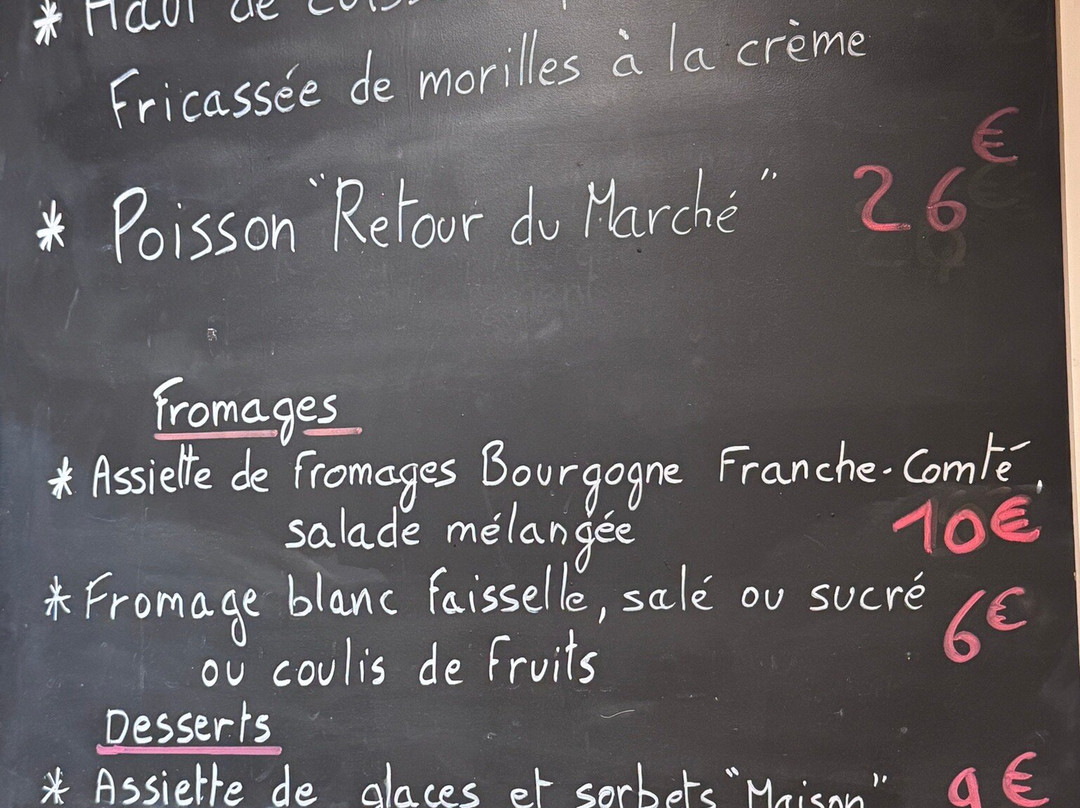 * Haut de
Fricassée de morilles à la crème
* Poisson "Retour du Marché" 26 €
Fromages
* Assiette de fromages Bourgogne Franche-Comté,
salade mélangée 10€
* Fromage blanc faisselle, salé ou sucré
ou coulis de fruits 6€
Desserts
* Assiette de glaces et sorbets "Maison" 9€